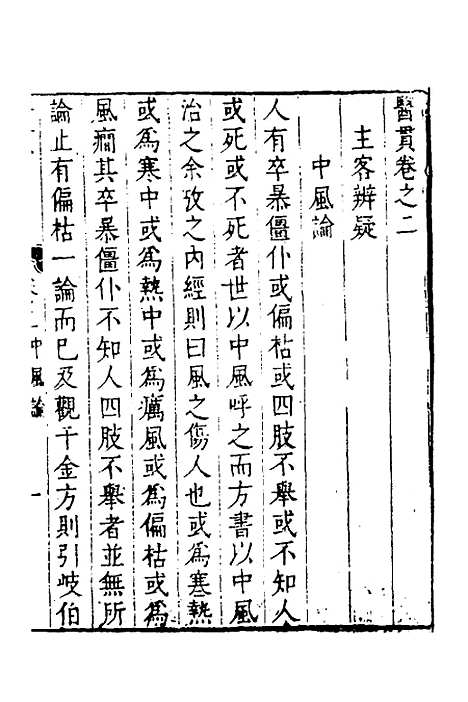 醫貫卷之二
主客辨疑
中風論
人有卒暴僵仆或偏枯或四肢不舉或不知人
或死或不死者世以中風呼之而方書以中風
治之余攷之內經則曰風之傷人也或爲寒熱
或爲寒中或爲熱中或爲癘風或爲偏枯或爲
風痱其卒暴僵仆不知人四肢不舉者並無所
論止有偏枯一論而已及觀千金方則引岐伯
中風論 一